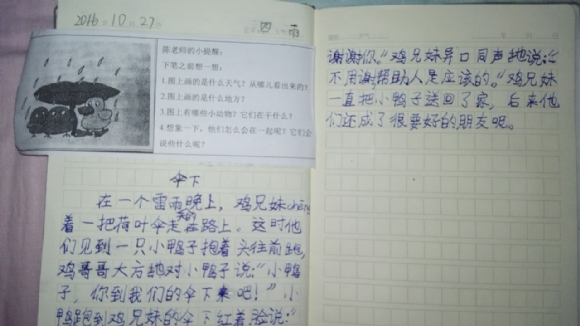 2016年10月27日
四 雨
陈老师的小提醒:
下笔之前想一想:
1.图上画的是什么天气?从哪儿看出来的?
2.图上画的是什么地方?
3.图上有哪些小动物?它们在干什么?
4.想象一下,他们怎么会在一起呢?它们会
说些什么呢?
伞下
在一个雷雨的晚上,鸡兄妹chēng
着一把荷叶伞走在路上。这时他
们见到一只小鸭子抱着头往前跑,
鸡哥哥大方地对小鸭子说:“小鸭
子,你到我们的伞下来吧!”小
鸭跑到鸡兄妹的伞下红着脸说:“
谢谢你。”鸡兄妹异口同声地说:“
不用谢,帮助人是应该的。”鸡兄妹
一直把小鸭子送回了家,后来他
们还成了很要好的朋友呢。